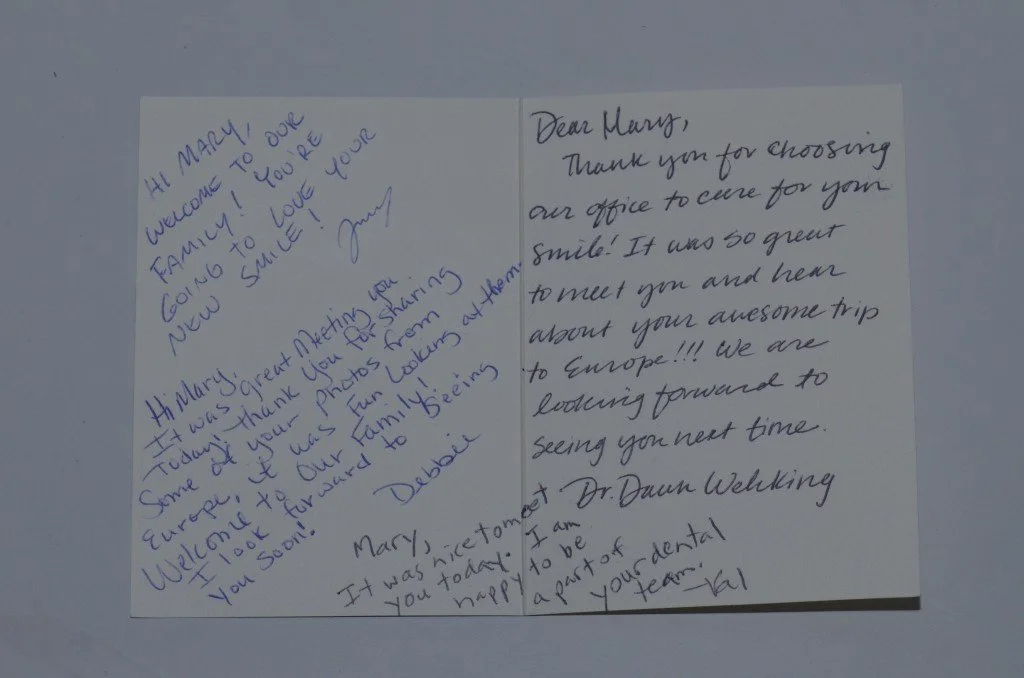 HI MARY,
WELCOME TO OUR
FAMILY! YOU'RE
GOING TO LOVE YOUR
NEW SMILE!
Hi Mary,
It was great Meeting you
Today! Thank you for sharing
Some of your photos from
Europe, it was fun Looking at them.
Welcome to Our Family!
I look forward to Seeing
you soon!
Debbie
Dear Mary,
Thank you for choosing
our office to care for your
smile! It was so great
to meet you and hear
about your awesome trip
to Europe!!! We are
looking forward to
seeing you next time.
Dr. Dawn Wehking
Mary,
It was nice to meet
you today. I am
happy to be
a part of
your dental
team.
—Val